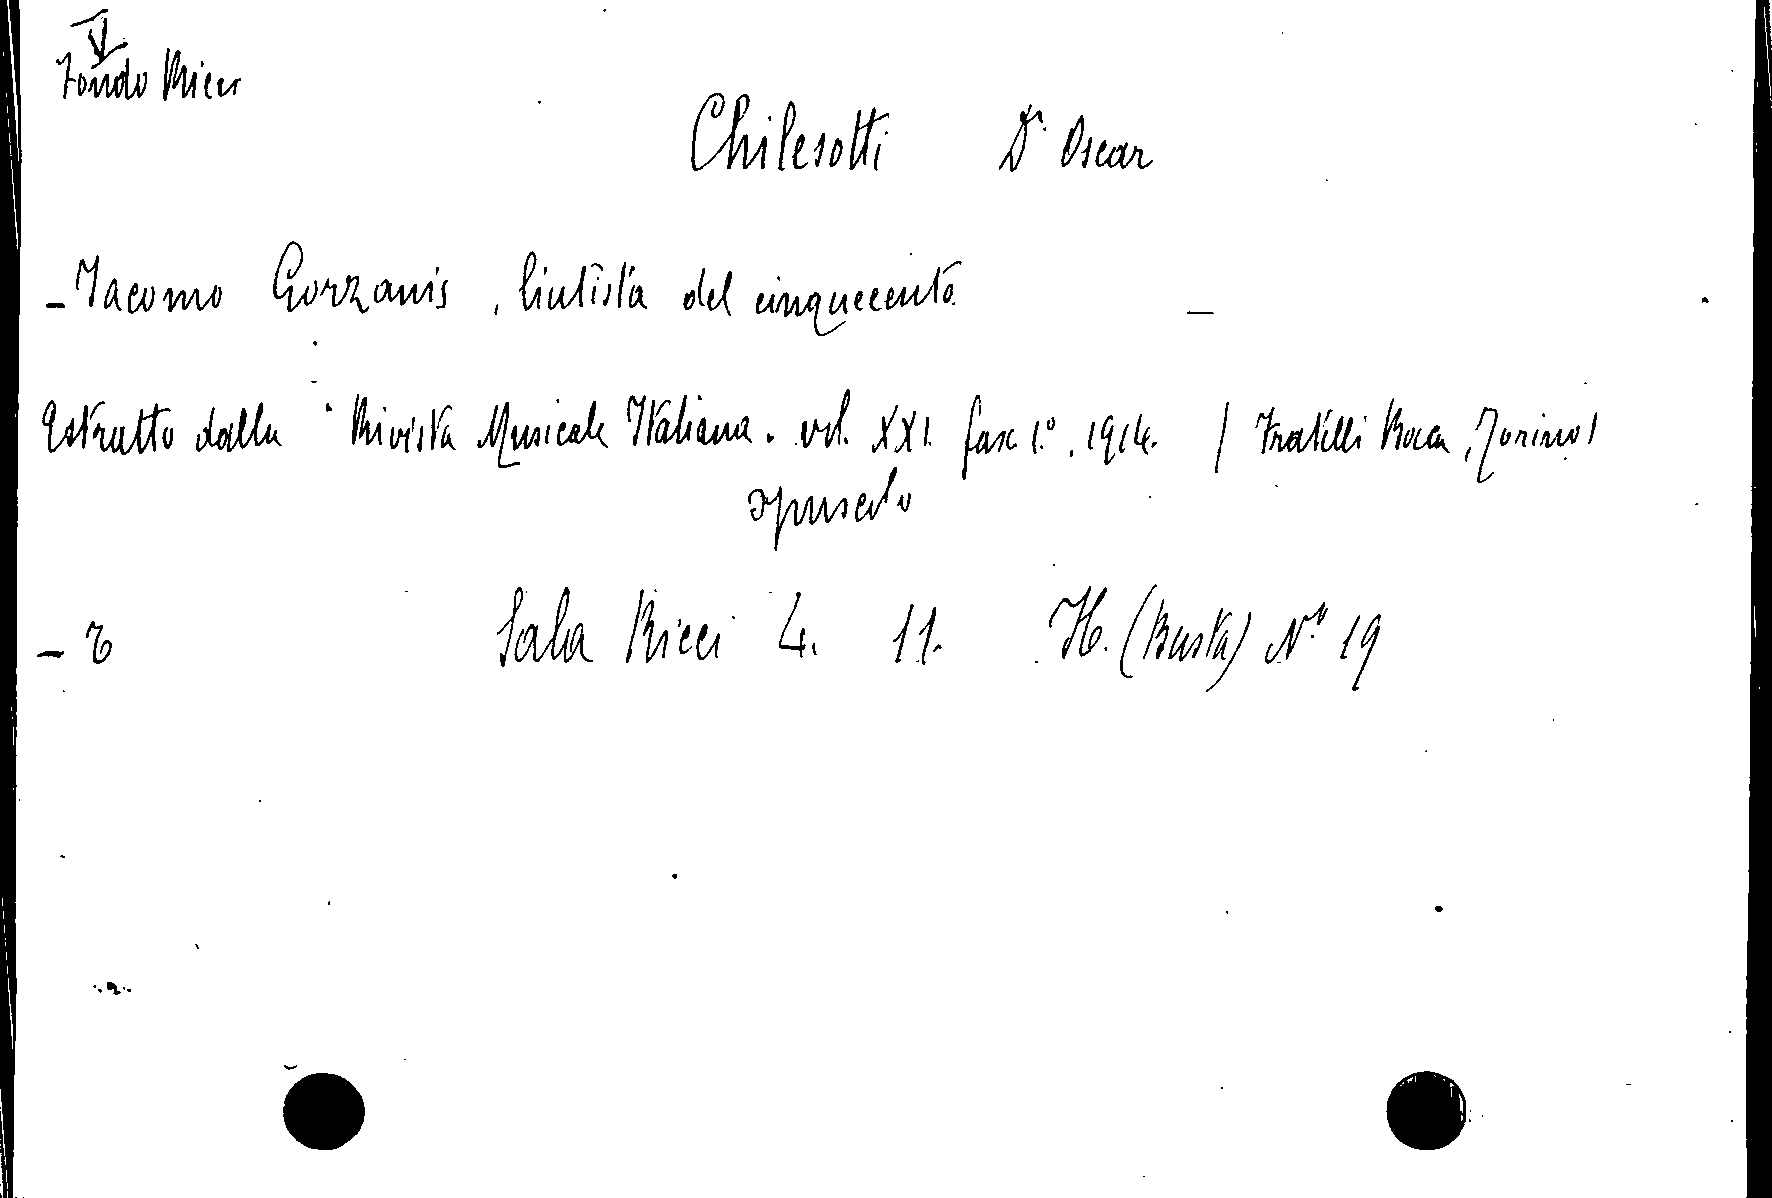 V
Fondo Ricci
Chilesotti Dr Oscar
- Jacomo Gorzanis, liutista del cinquecento. -
Estratto dalla "Rivista Musicale Italiana. vol. XXI. fasc 1.º. 1914. / Fratelli Bocca, Torino/
opuscolo
- 7 Sala Ricci 4. 11. H. (Busta) Nº 19